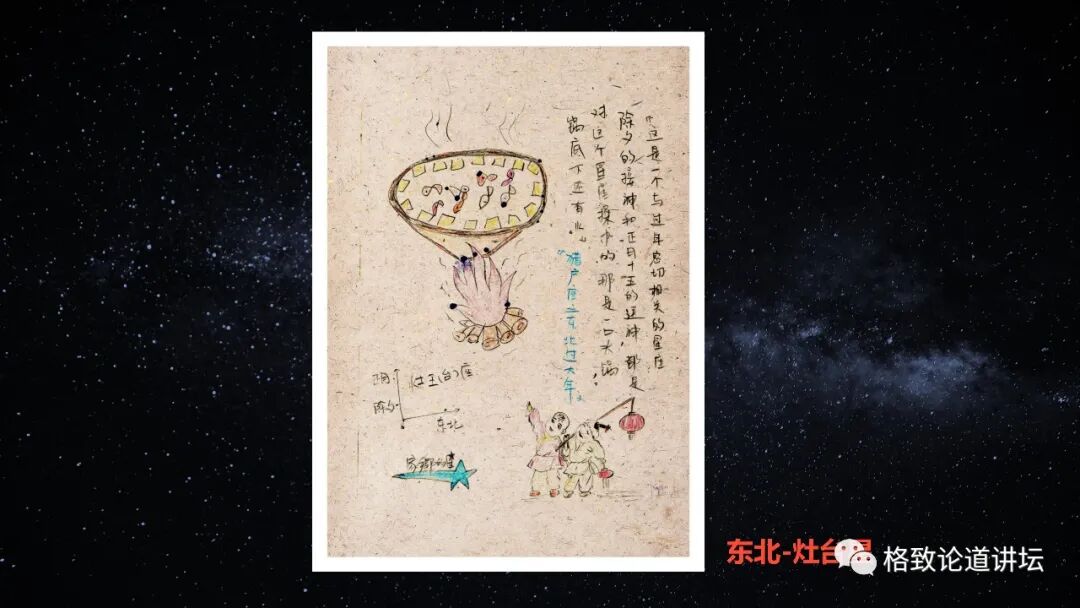 “这是一个与过年密切相关的星座
除夕的接神和正月十五的送神,都是
对这个星座操办的那是一口大锅,
锅底下还有火。”
“猎户座之东北过大年。”
阴
灶王(台)座
东北
家乡的星
东北-灶台
格致论道讲坛